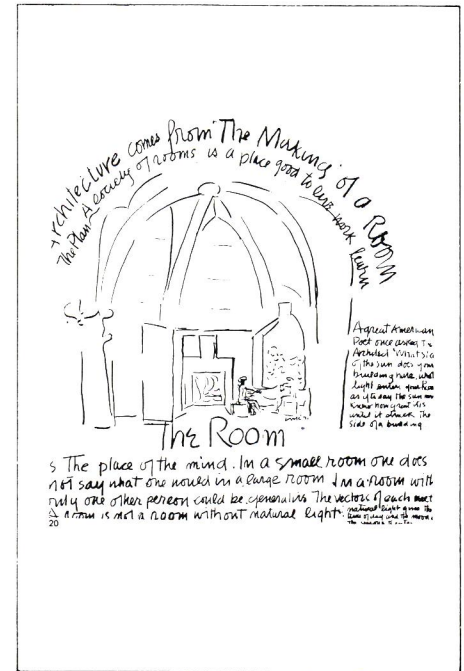 Architecture comes from The Making of a Room
The Plan A society of rooms is a place good to live work learn
A great American
Poet once asked the
Architect 'What slice
of the sun does your
building have, what
light enters your Room
as if to say the sun never
knew how great it is
until it struck the
side of a building
The Room
s The place of the mind. In a small room one does
not say what one would in a large room In a room with
only one other person could be generative The vectors of each meet
A room is not a room without natural light natural light gives the
time of day and the mood
20